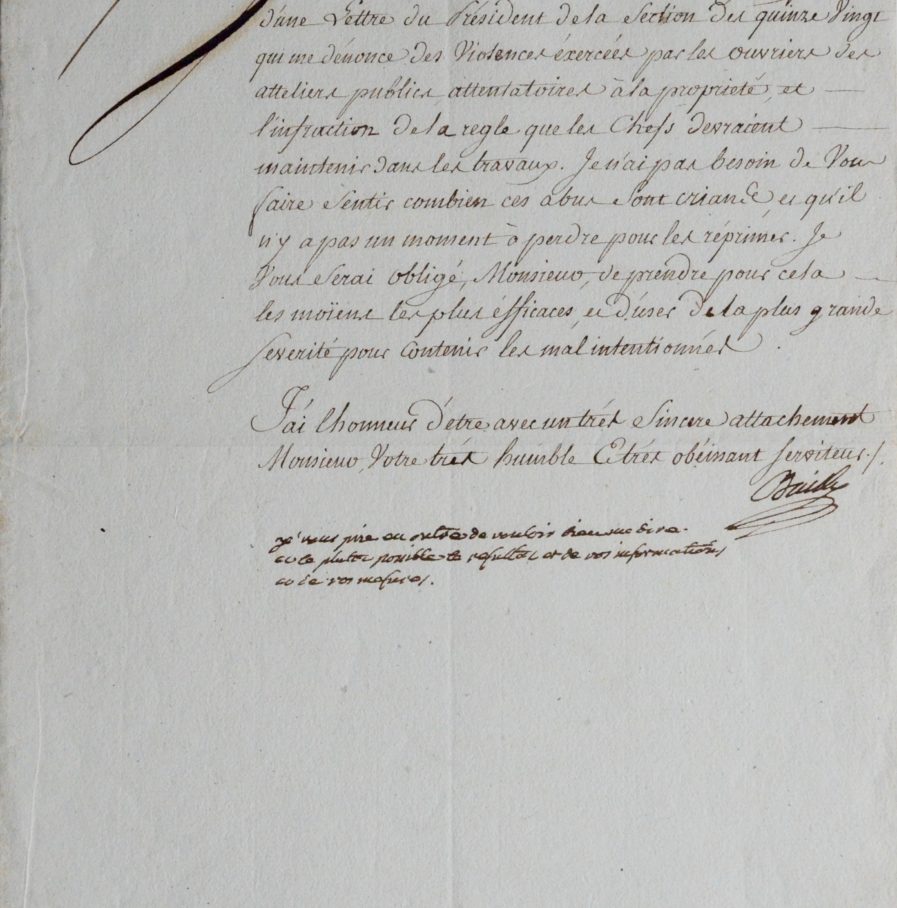 d'une Lettre du Président de la Section des quinze Vingt
qui me dénonce des Violences éxercées par les ouvriers des
atteliers publics, attentatoires à la propriété, et
l'infraction de la regle que les Chefs devraient
maintenir dans les travaux. Je n'ai pas besoin de Vous
faire Sentir combien ces abus Sont criands et qu'il
n'y a pas un moment à perdre pour les réprimer. Je
Vous Serai obligé, Monsieur, de prendre pour cela
les moïens les plus éfficaces, et d'user de la plus grande
Severité pour Contenir les mal intentionnés.
J'ai l'honneur d'être avec un trés Sincere attachement
Monsieur, Votre trés humble Et trés obéissant Serviteur./.
Bailly
je vous prie en outre de vouloir bien me dire
le plutot possible le resultat et de vos informations
et de vos mesures.